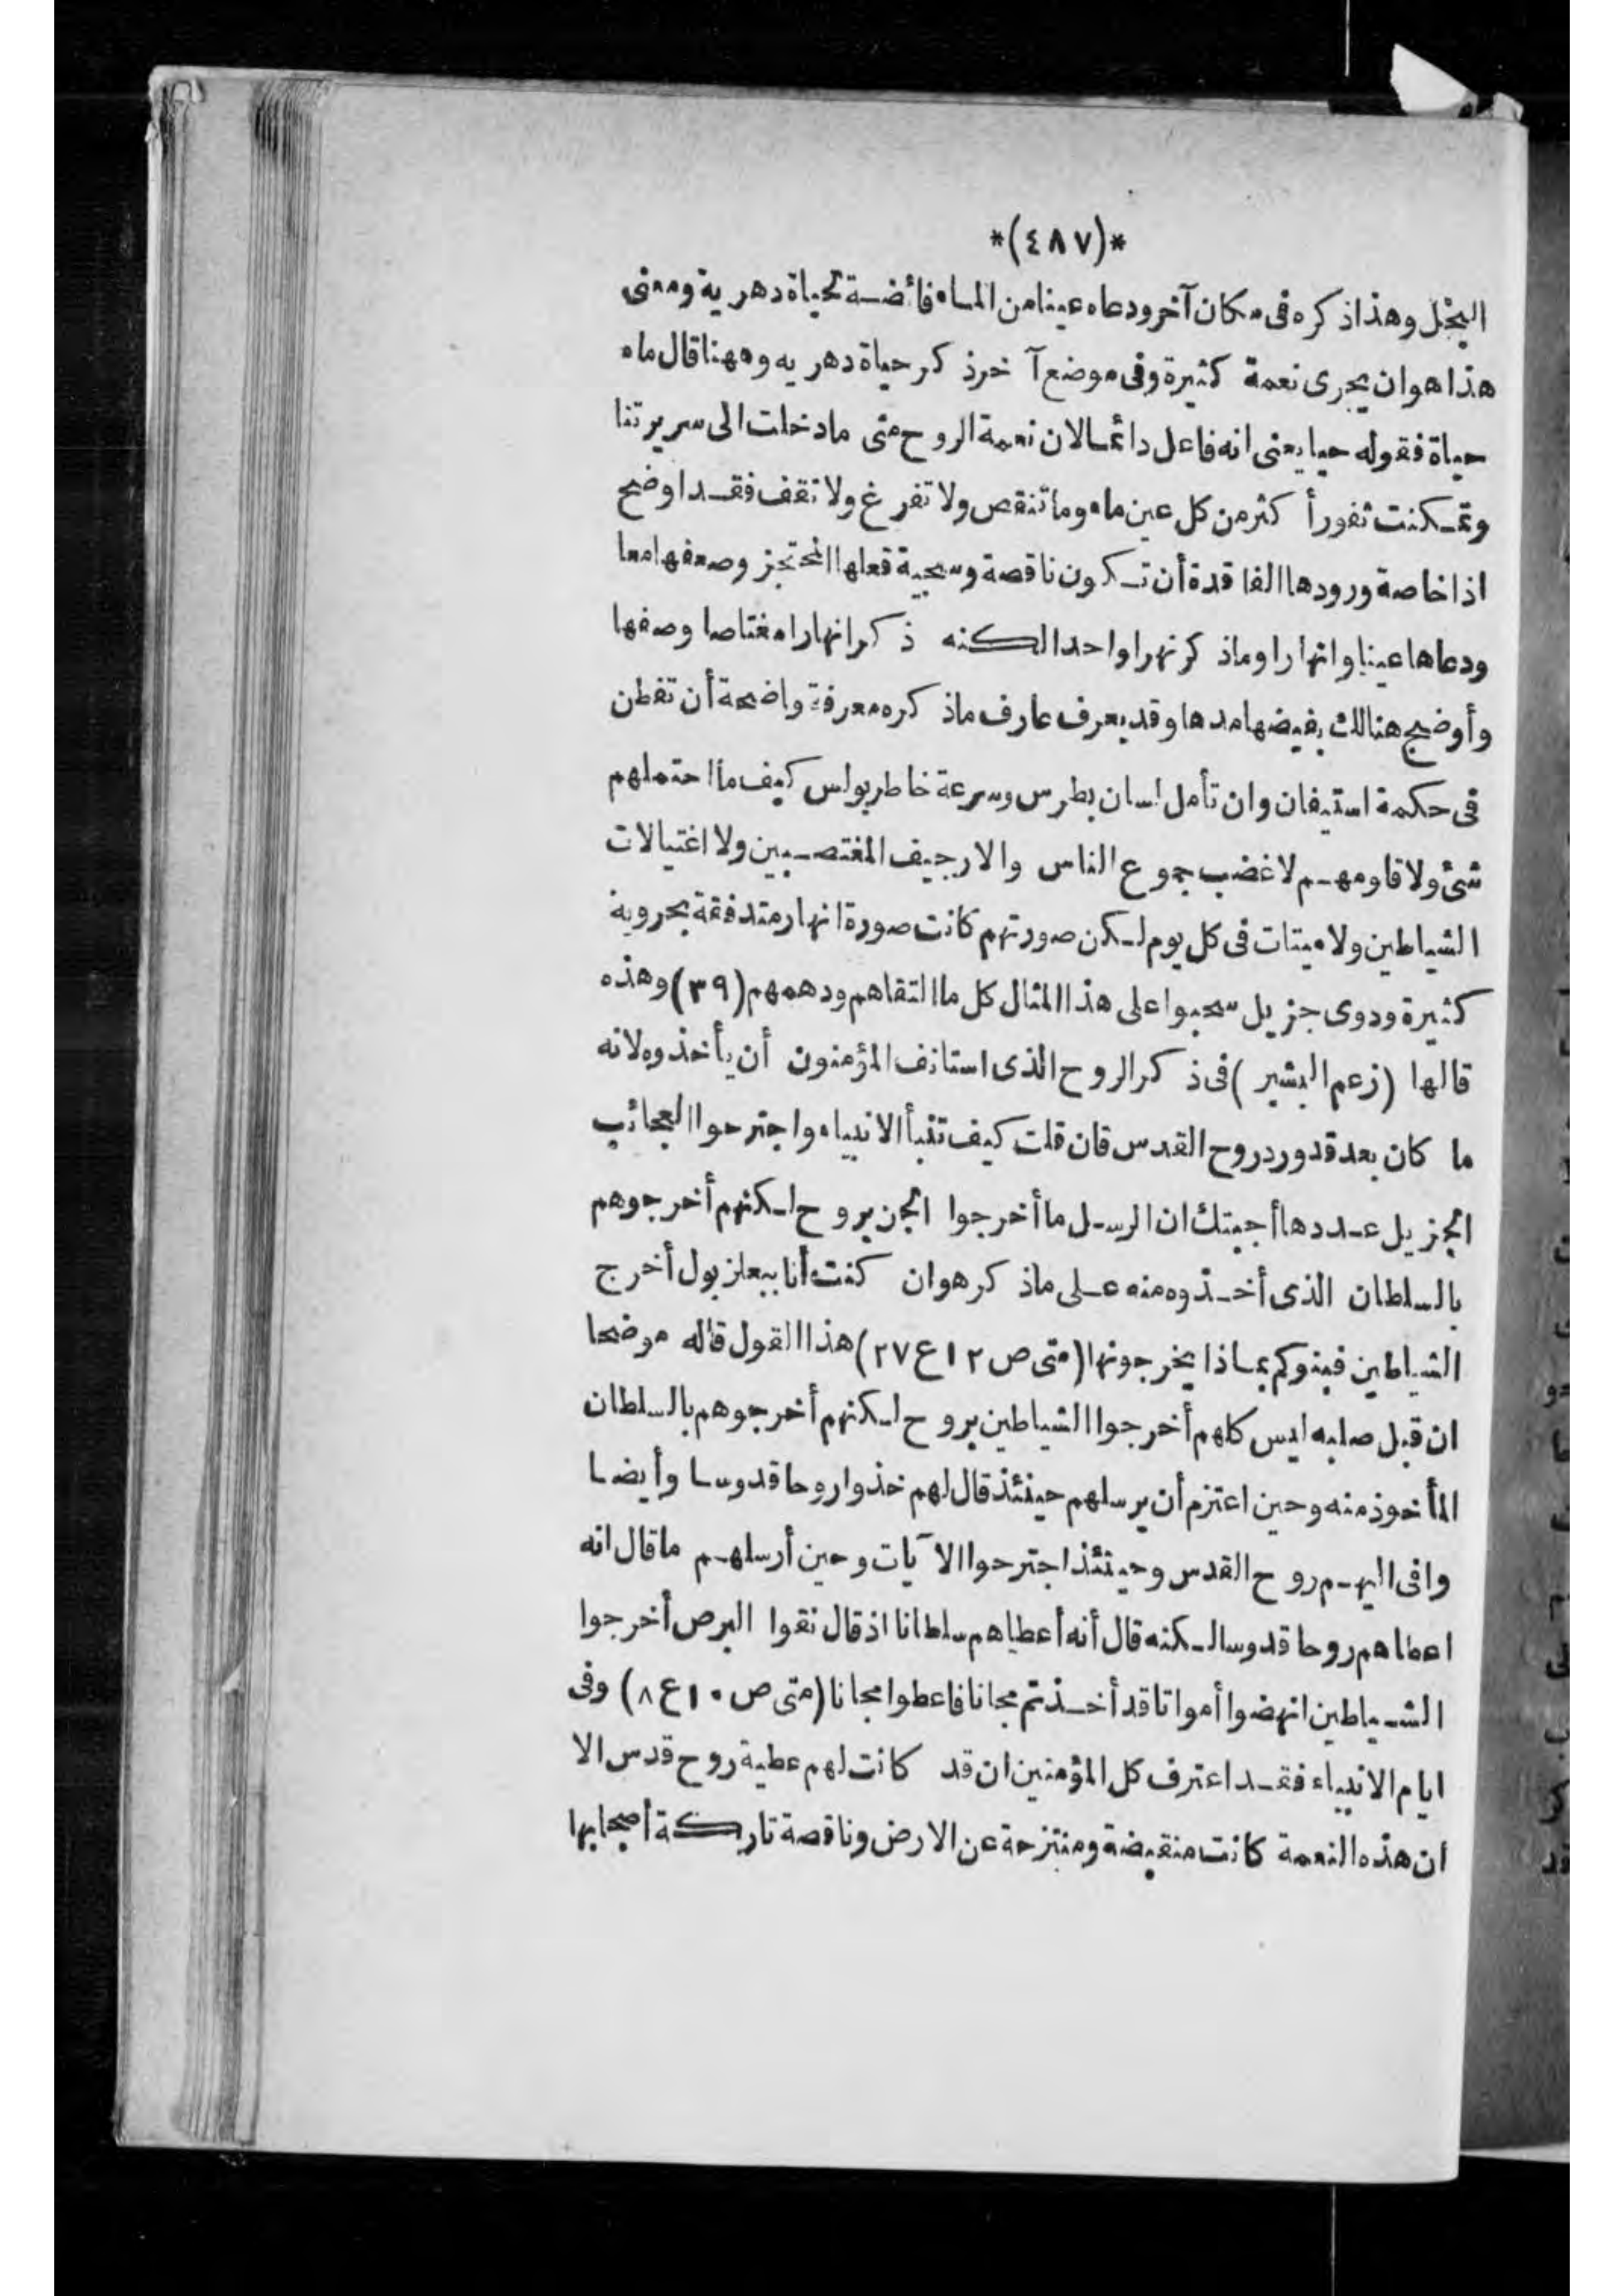 *(٤٨٧)*
البخل وهذا ذكره فى مكان آخر ودعاه عينا من الماء فائضة لحياة دهرية ومعنى
هذا هو ان يجرى نعمة كثيرة وفى موضع آخر ذكر حياة دهريه وههنا قال ماء
حياة فقوله حيا يعنى انه فاعل دائما لان نعمة الروح متى ما دخلت الى سريرتنا
وتمكنت تفور أكثر من كل عين ماء وما تنقص ولا تفرغ ولا تقف فقد اوضح
اذا خاصة ورودها الفاقدة أن تكون ناقصة وسجية فعلها المحتجز وصفها معا
ودعاها عينا وانهارا وما ذكر نهرا واحدا لكنه ذكر انهارا مغتاصا وصفها
وأوضح هنالك بفيضها مدها وقد يعرف عارف ماذكره معرفة واضحة أن تفطن
فى حكمة استيفان وان تأمل لسان بطرس وسرعة خاطر بولس كيف ما احتملهم
شئ ولا قاومهم لا غضب جموع الناس والارجيف المغتصبين ولا اغتيالات
الشياطين ولا ميتات فى كل يوم لكن صورتهم كانت صورة انهار متدفقة بجروية
كثيرة ودوى جزيل سحبوا على هذا المثال كل ما التقاهم ودهمهم (٣٩) وهذه
قالها (زعم البشير) فى ذكر الروح الذى استانف المؤمنون أن يأخذوه لانه
ما كان بعد قد ورد روح القدس فان قلت كيف تنبأ الانبياء واجترحوا العجائب
الجزيل عددها أجبتك ان الرسل ما أخرجوا الجن بروح لكنهم أخرجوهم
بالسلطان الذى أخذوه منه على ماذكر هو ان كنت أنا ببعلزبول أخرج
الشياطين فبنوكم بماذا يخرجونها (متى ص ١٢ ع ٢٧) هذا القول قاله موضحا
ان قبل صلبه ليس كلهم أخرجوا الشياطين بروح لكنهم أخرجوهم بالسلطان
المأخوذ منه وحين اعتزم أن يرسلهم حينئذ قال لهم خذوا روحا قدوسا وأيضا
وافى اليهم روح القدس وحينئذ اجترحوا الآيات وحين أرسلهم ما قال انه
اعطاهم روحا قدوسا لكنه قال أنه أعطاهم سلطانا اذ قال نقوا البرص أخرجوا
الشياطين انهضوا أمواتا قد أخذتم مجانا فاعطوا مجانا (متى ص ١٠ ع ٨) وفى
ايام الانبياء فقد اعترف كل المؤمنين ان قد كانت لهم عطية روح قدس الا
ان هذه النعمة كانت منقبضة ومنتزحة عن الارض وناقصة تاركة أصحابها